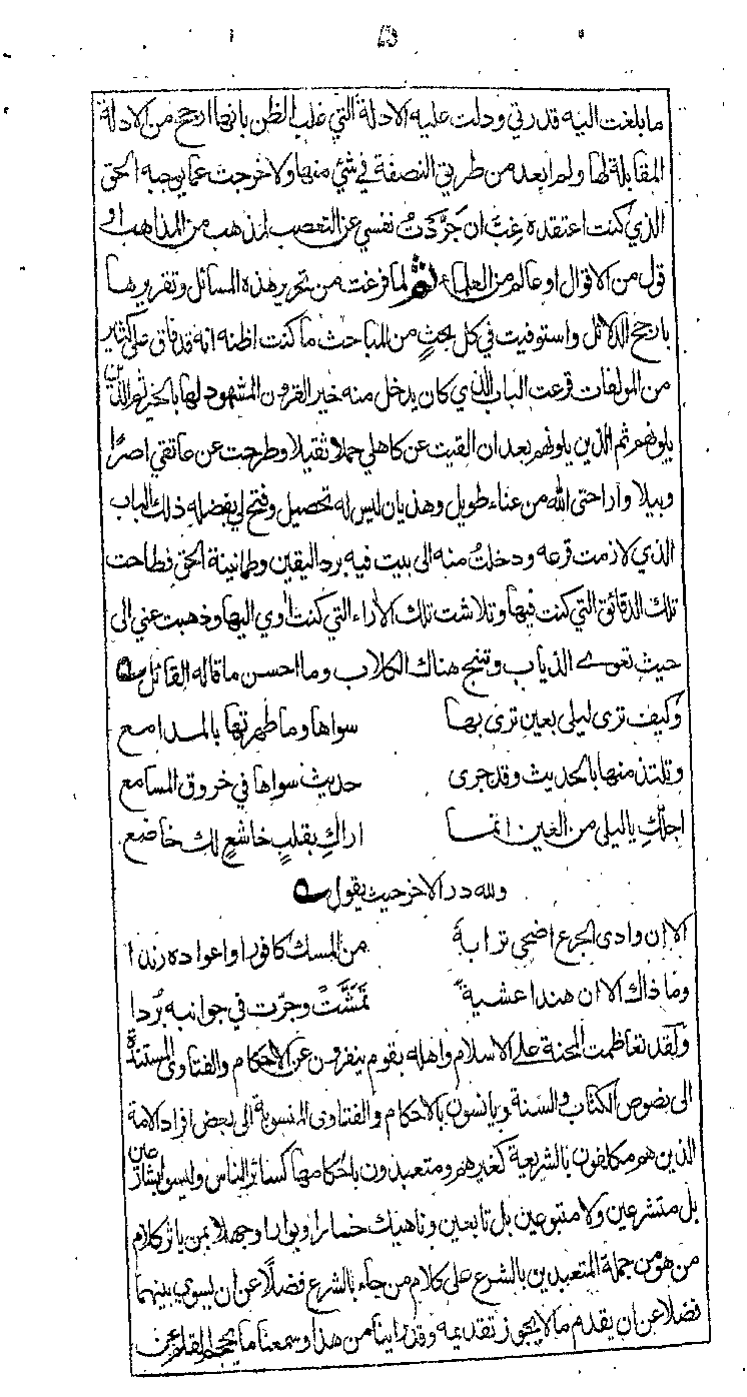 ما بلغت اليه قدرتي ودلت عليه الادلة التي غلب الظن بانها ارجح من الادلة
المقابلة لها ولم ابعد من طريق النصفة في شئ منها ولا خرجت عما يوجبه الحق
الذي كنت اعتقده غبّ ان جرّدتُ نفسي عن التعصب لمذهب من المذاهب او
قول من الاقوال او عالم من العلماء لما فرغت من تحرير هذه المسائل وتقريرها
بارجح الدلائل واستوفيت في كل بحثٍ من المباحث ما كنت اظنه انه قد فاق على كثير
من المولفات قرعت الباب الذي كان يدخل منه خير القرون المشهود لها بالخير ثم الذين
يلونهم ثم الذين يلونهم بعد ان القيت عن كاهلي حملا ثقيلا وطرحت عن عاتقي اصرًا
وبيلا واراحنى الله من عناء طويل وهذيان ليس له تحصيل وفتح لي بفضله ذلك الباب
الذي لازمت قرعه ودخلتُ منه الى بيت فيه برد اليقين وطمانينة الحق فطاحت
تلك الدقائق التي كنت فيها وتلاشت تلك الاراء التي كنت اوي اليها وذهبت عني الى
حيث تعوى الذياب وتنبح هناك الكلاب وما احسن ما قاله القائل
وكيف ترى ليلى بعين ترى بها سواها وما طهرتها بالمدامع
وتلتذ منها بالحديث وقد جرى حديث سواها في خروق المسامع
اجلّكِ يا ليلى من العين انما اراكِ بقلبٍ خاشعٍ لك خاضع
ولله در الاخر حيث يقول
الا ان وادى الجرع اضحى ترابهُ من المسك كافورا واعواده رندا
وما ذاك الا ان هندا عشيةً تمَشَّتْ وجرّت في جوانبه بُردا
ولقد تعاظمت المحنة على الاسلام واهله بقوم ينفرون عن الاحكام والفتاوى المستندة
الى نصوص الكتاب والسنة ويانسون بالاحكام والفتاوى المنسوبة الى بعض افراد الامة
الذين هم مكلفون بالشريعة كغيرهم ومتعبدون باحكامها كسائر الناس وليسوا بشارعين
بل متشرعين ولا متبوعين بل تابعين وناهيك خسارا وبوارا وجهلا بمن ياثر كلام
من هو من جملة المتعبدين بالشرع على كلام من جاء بالشرع فضلًا عن ان يسوي بينهما
فضلا عن ان يقدم ما لا يجوز تقديمه وقد راينا من هذا وسمعنا ما يخجل القلم عن